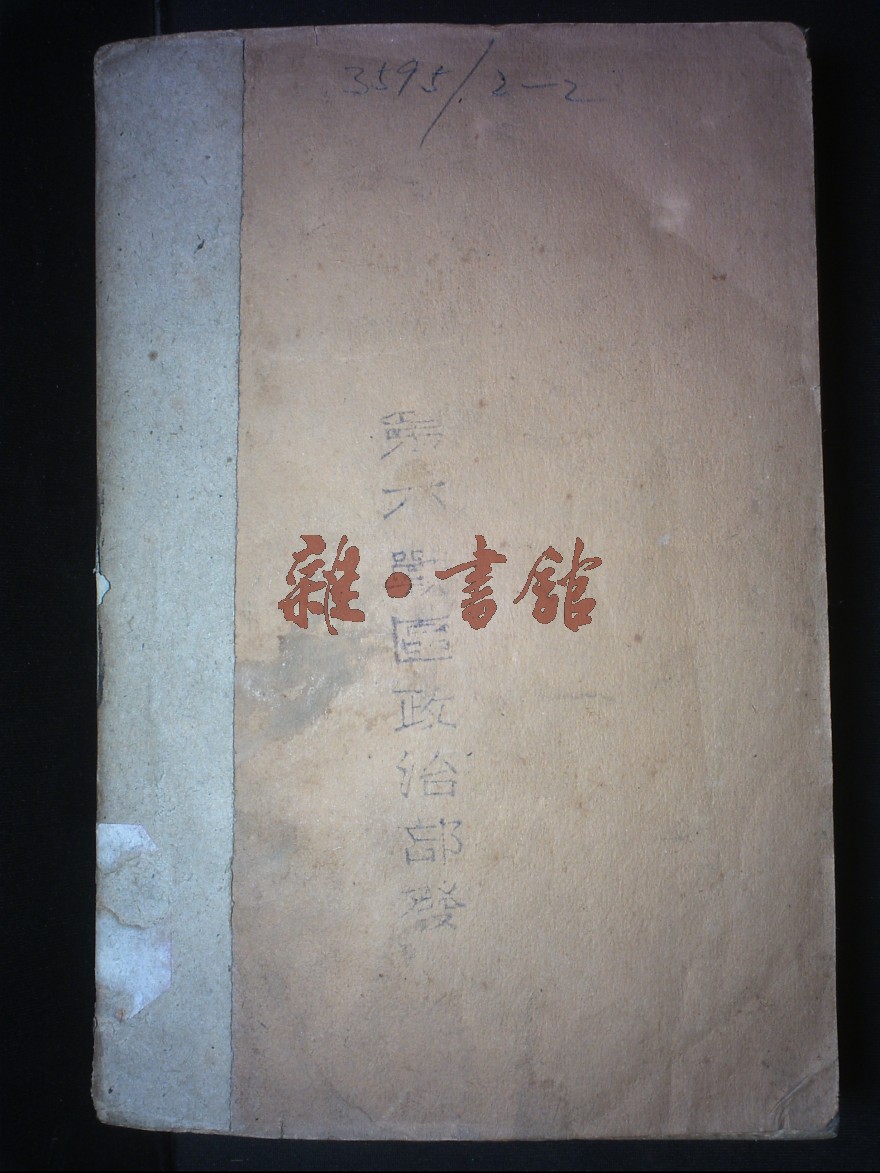 3595/2-2
第六戰區政治部發
雜·書館